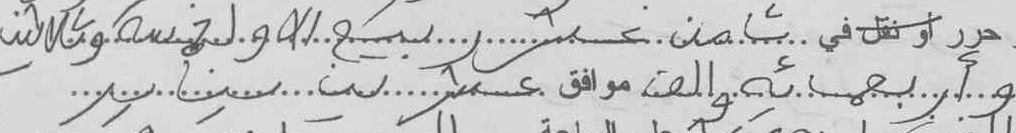 حرر أو نقل في ثامن عشر ربيع الاول خمسة وثلاثين
وأربعمائة والف موافق عشرين يناير